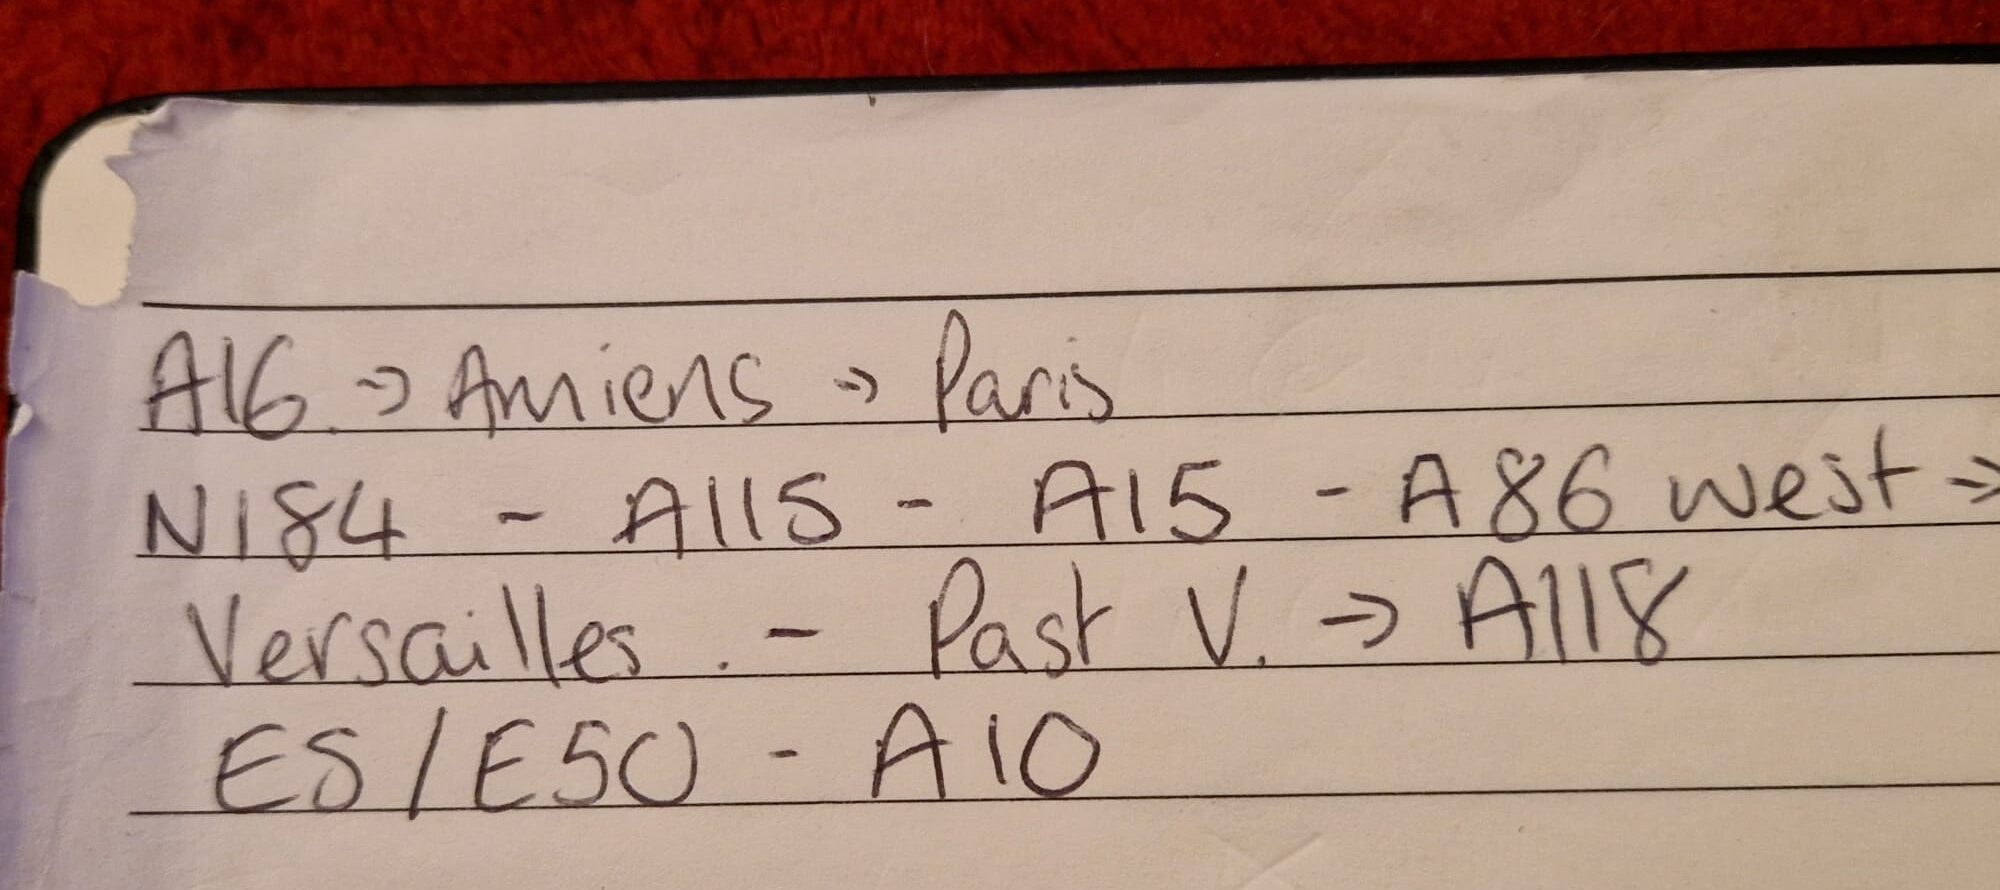 A16. → Amiens → Paris
N184 - A115 - A15 - A86 west →
Versailles. - Past V. → A118
E5/E50 - A10